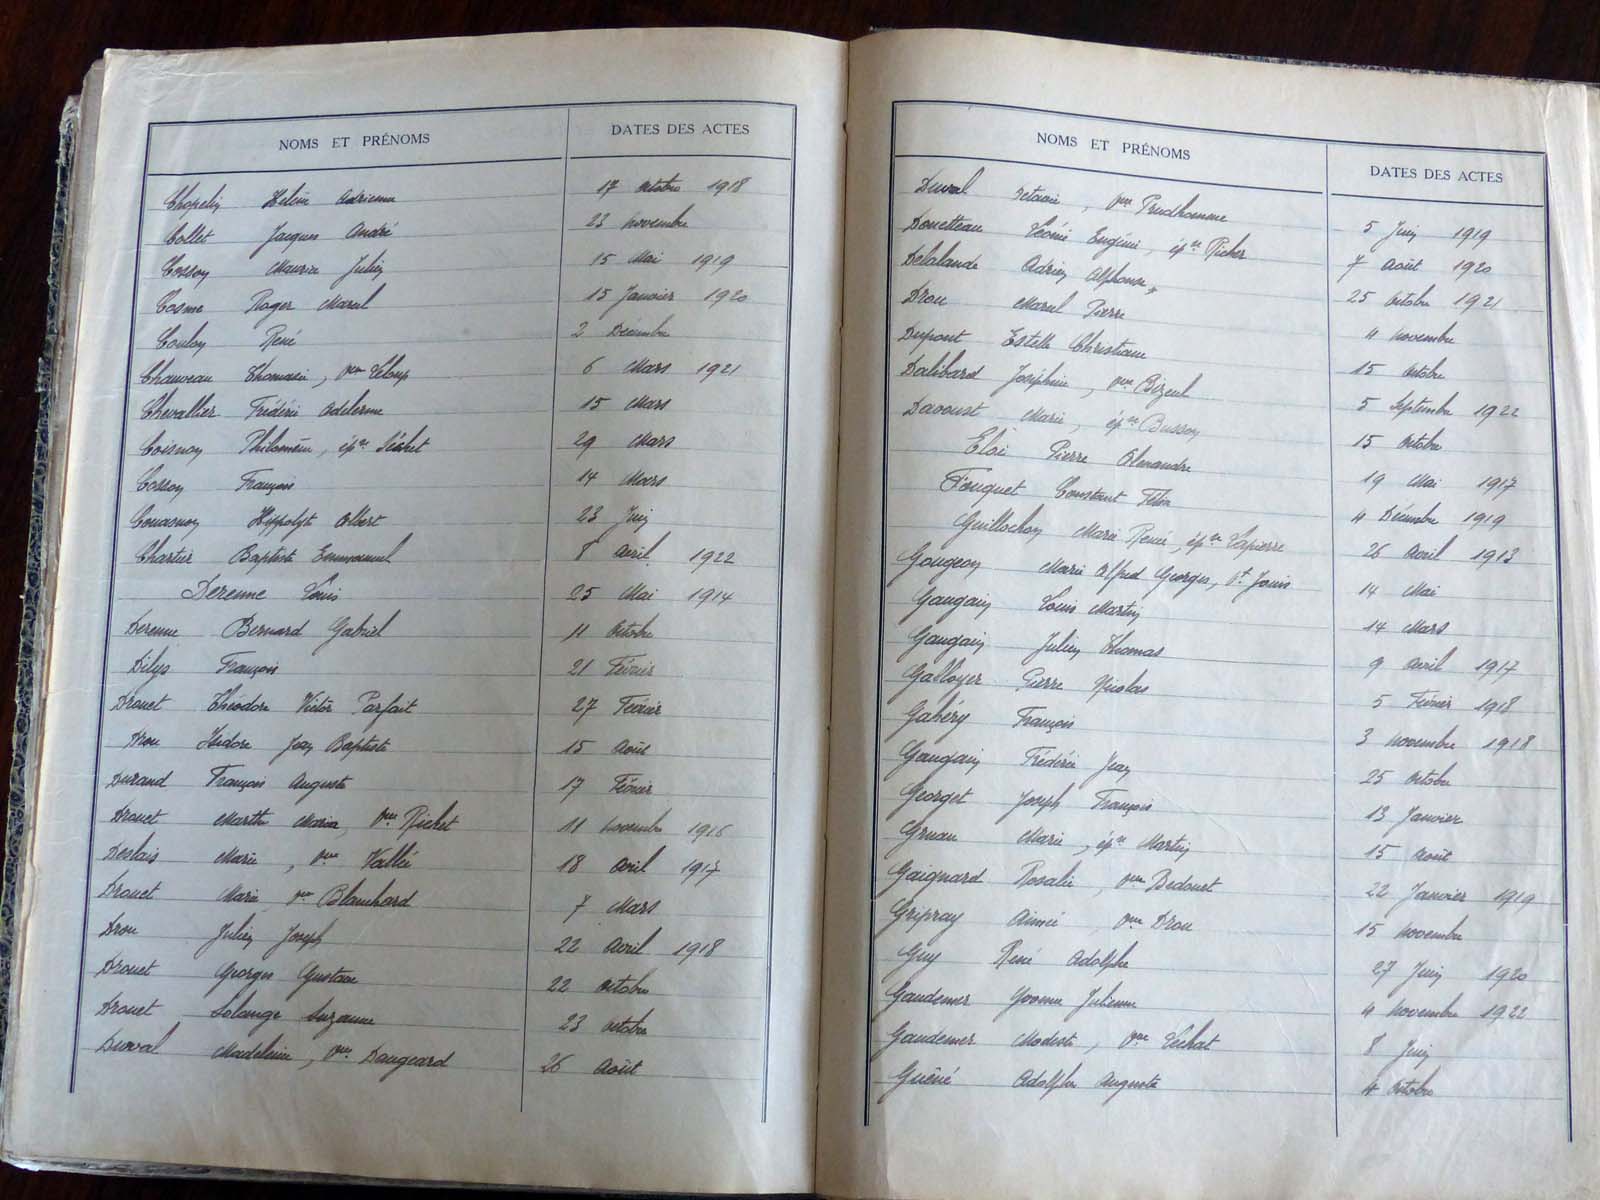 NOMS ET PRÉNOMS DATES DES ACTES
Chopelin Hélène Adrienne 17 Octobre 1918
Collet Jacques André 23 Novembre
Cosson Maurice Julien 15 Mai 1919
Cosme Roger Marcel 15 Janvier 1920
Coulon René 2 Décembre
Chauveau Thomasin, vve Leloup 6 Mars 1921
Chevallier Frédéric Adelerme 15 Mars
Coisnon Philomène, épse 29 Mars
Cosson François 14 Mars
Couasnon Hippolyte Albert 23 Juin
Chartier Baptiste Emmanuel 8 Avril 1922
Derenne Louis 25 Mai 1914
Derenne Bernard Gabriel 11 Octobre
Dilys François 21 Février
Drouet Théodore Victor Parfait 27 Février
Drou Isidore Jean Baptiste 15 Août
Durand François Auguste 17 Février
Drouet Marthe Maria, vve Richet 11 Novembre 1916
Deslais Marie, vve Vallée 18 Avril 1917
Drouet Marie, vve Blanchard 7 Mars
Drou Julien Joseph 22 Avril 1918
Drouet Georges Gustave 22 Octobre
Drouet Solange Suzanne 23 Octobre
Duval Madeleine, vve Daugeard 26 Août
NOMS ET PRÉNOMS DATES DES ACTES
Duval Octavie, vve Prudhomme 5 Juin 1919
Douetteau Léonie Eugénie, épse Richer 7 Août 1920
Delalande Adrien Alphonse 25 Octobre 1921
Drou Marcel Pierre 4 Novembre
Dupont Estelle Christiane 15 Octobre
Dalibard Joséphine, vve Bizeul 5 Septembre 1922
Davoust Marie, épse Busson 15 Octobre
Eloi Pierre Alexandre 19 Mai 1917
Fouquet Constant Félix 4 Décembre 1919
Guillochon Marie Renée, épse Lapierre 26 Avril 1913
Gougeon Marie Alfred Georges, St Jouis 14 Mai
Gaugain Louis Martin 14 Mars
Gaugain Julien Thomas 9 Avril 1917
Galloyer Pierre Nicolas 5 Février 1918
Gahéry François 3 Novembre 1918
Gaugain Frédéric Jean 25 Octobre
Georget Joseph François 13 Janvier
Gruau Marie, épse Martin 15 Août
Gaignard Rosalie, vve Bedouet 22 Janvier 1919
Gripray Aimée, vve Drou 15 Novembre
Guy René Adolphe 27 Juin 1920
Gaudemer Yvonne Julienne 4 Novembre 1922
Gaudemer Modeste, vve Lechat 8 Juin
Guéné Adolphe Auguste 4 Octobre